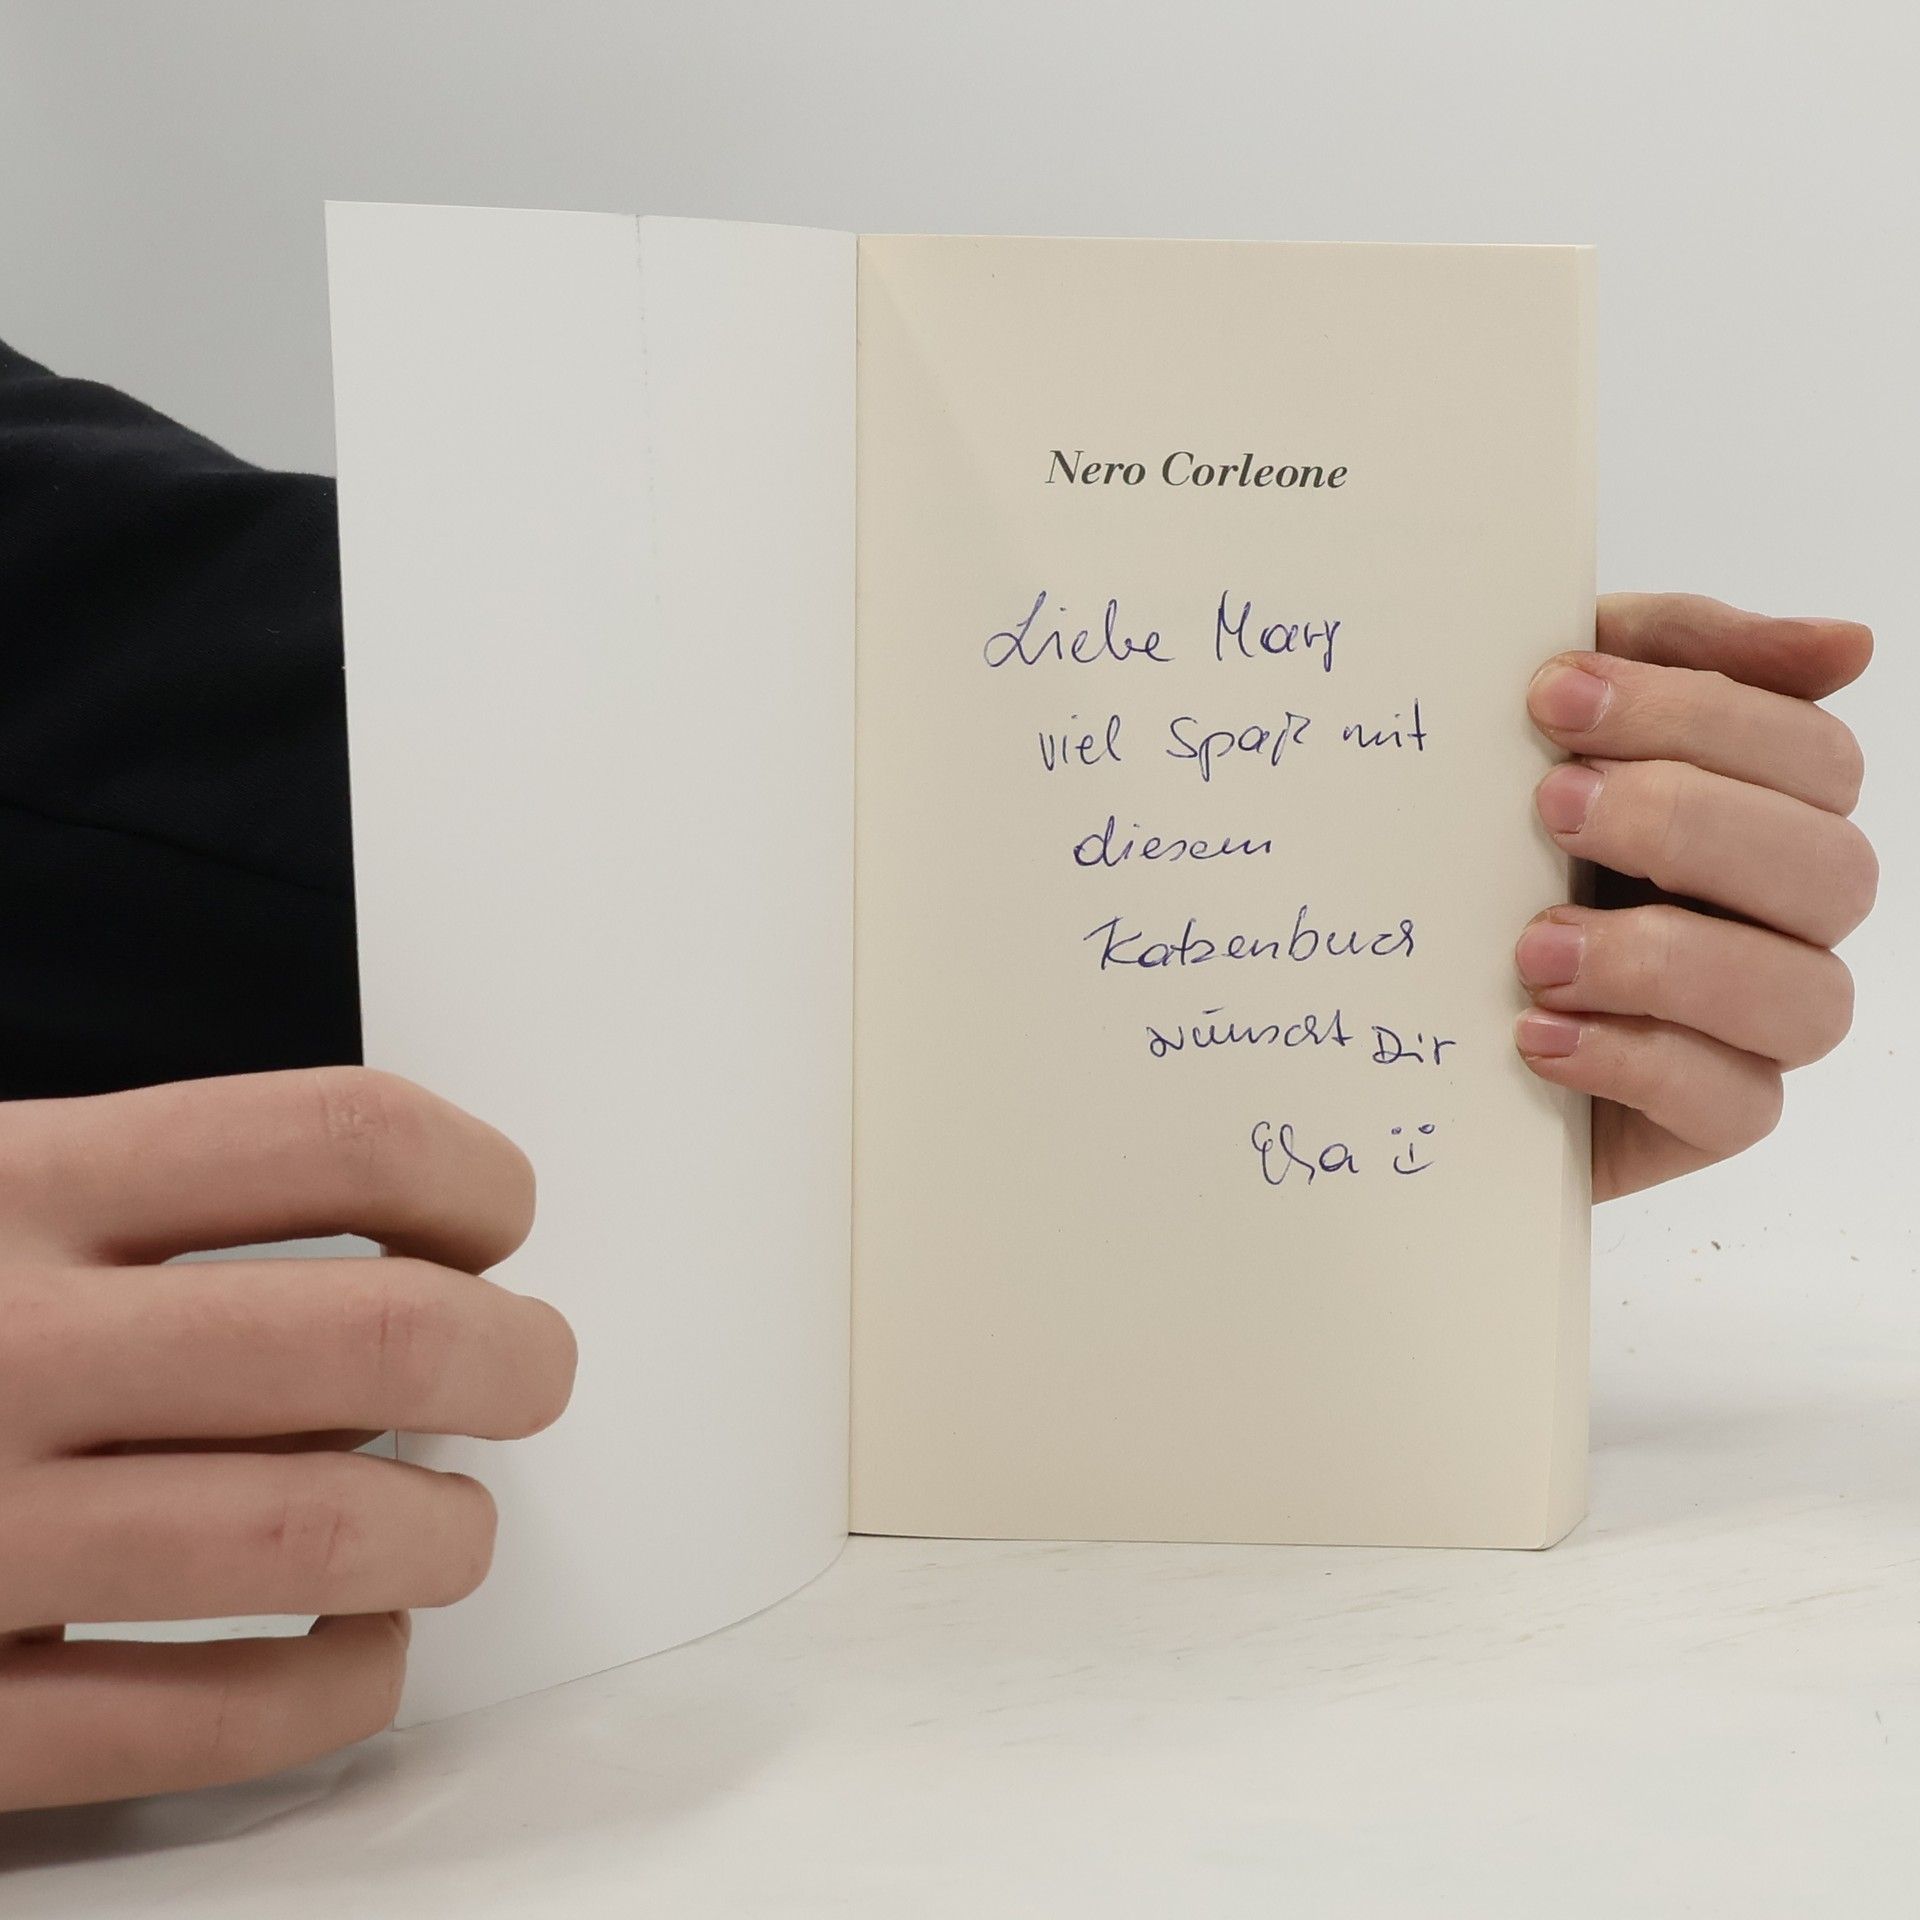 Nero Corleone
Liebe Mary
viel Spaß mit
diesem
Katzenbuch
wünscht Dir
Elsa